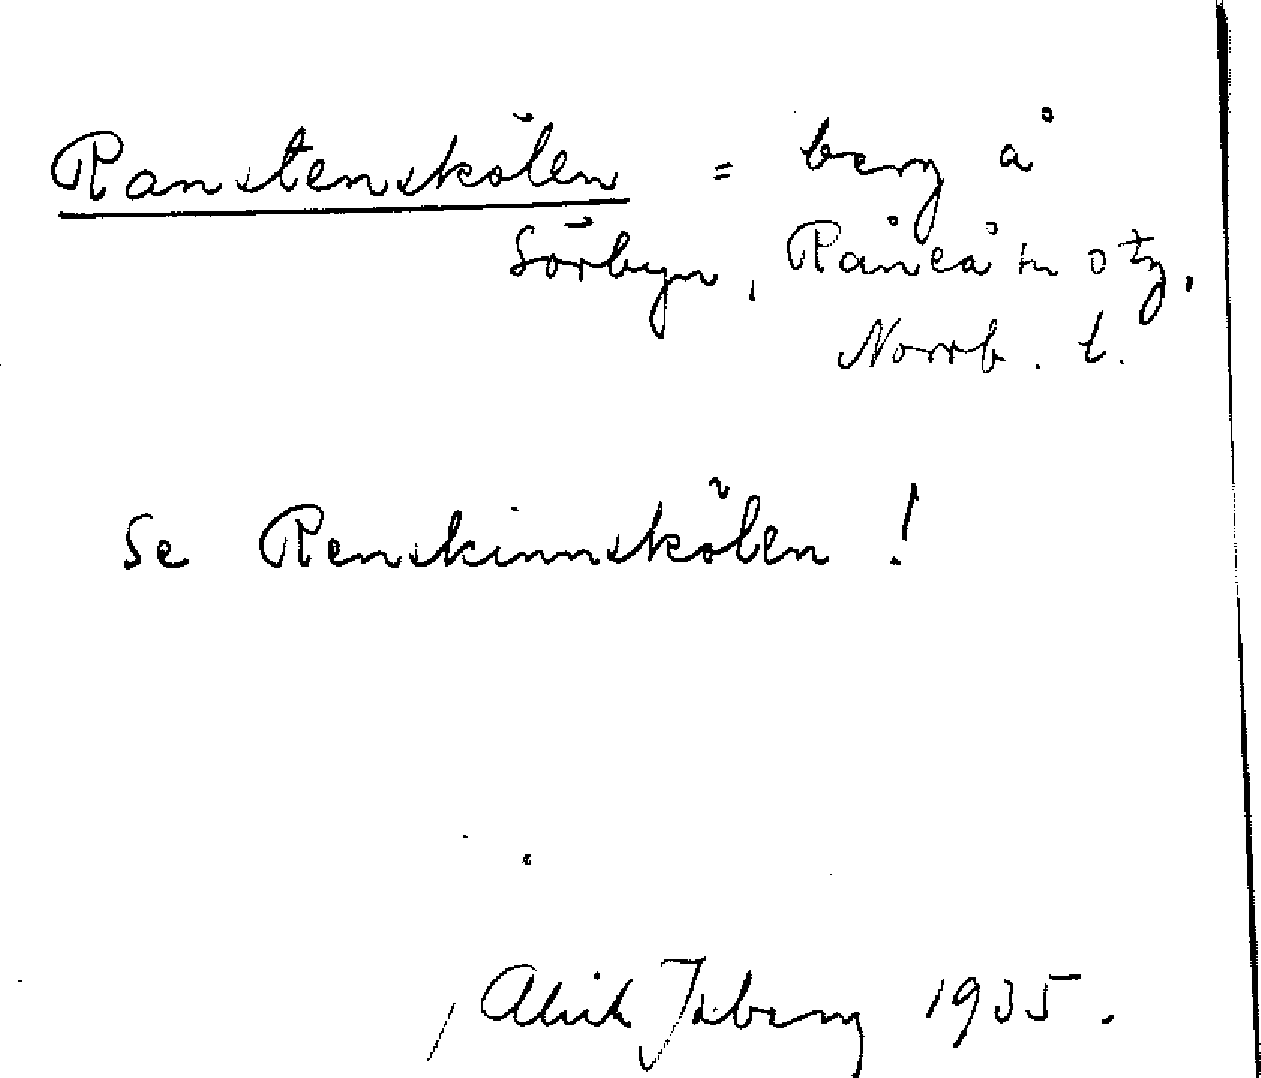 Ranstenskölen = berg å
Sörbyn, Råneå sn o tg,
Norrb. l.
Se Renskinnskölen !
Alrik Isberg 1935.